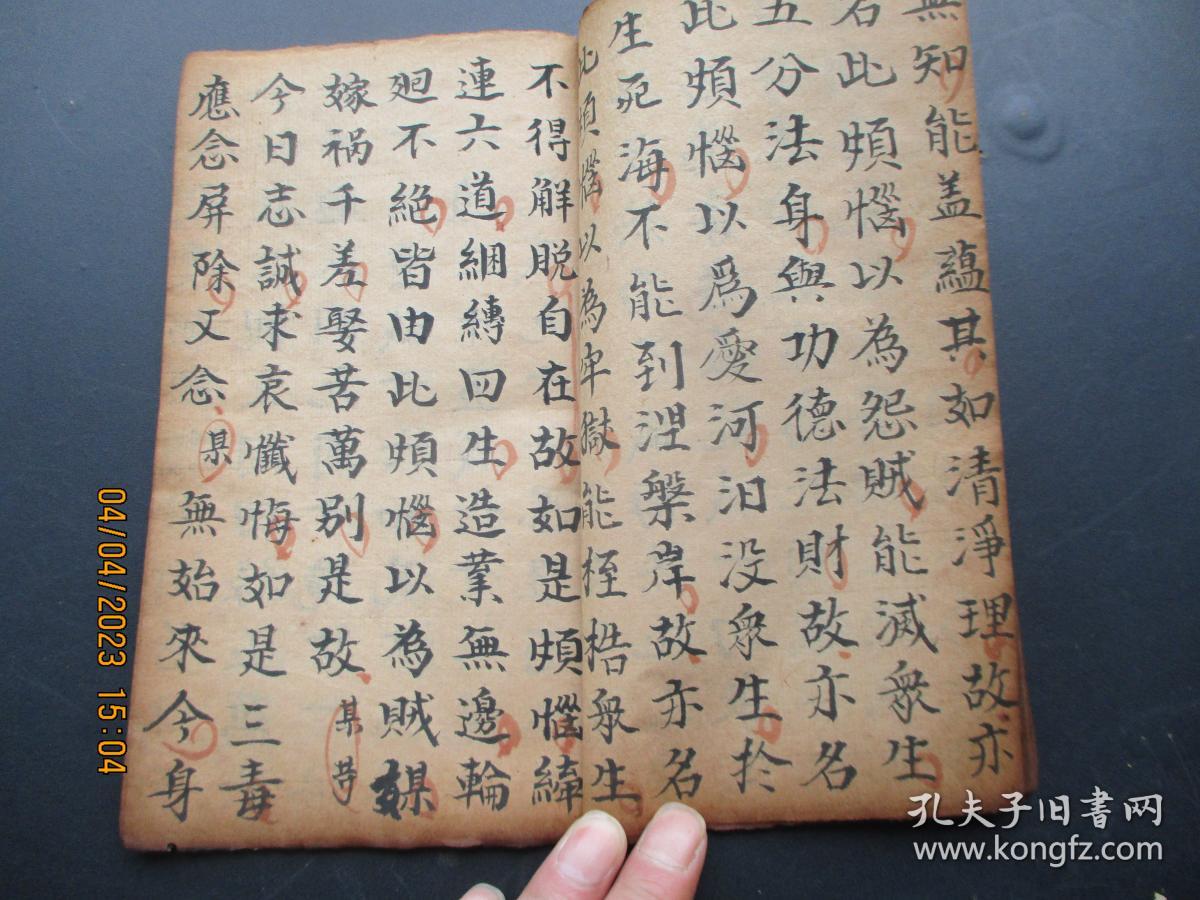 無知能盖藴其如清淨理故亦
名此煩惱以為怨賊能滅衆生
五分法身與功德法財故亦名
此煩惱以爲愛河汩没衆生扵
生死海不能到涅槃岸故亦名
此煩惱以為牢獄能桎梏衆生
不得解脱自在故如是煩惱綘
連六道綑縛四生造業無邊輪
廻不絕皆由此煩惱以為賊媒
嫁祸千差娶苦萬别是故某等
今日志誠求哀懺悔如是三毒
應念屏除又念某無始來今身
04/04/2023 15:04
孔夫子旧书网
www.kongfz.com